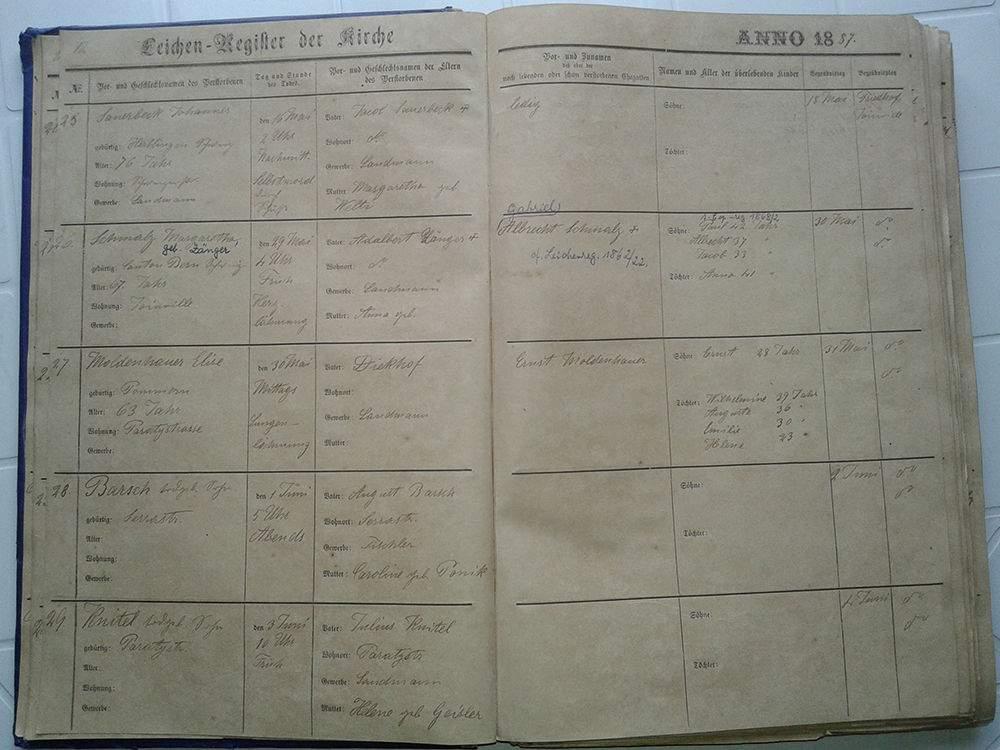 Leichen-Register der Kirche
ANNO 1887.
№ Vor- und Geschlechtsnamen des Verstorbenen Tag und Stunde des Todes. Vor- und Geschlechtsnamen der Eltern des Verstorbenen
Vor- und Zunamen des oder der noch lebenden oder schon verstorbenen Ehegatten Namen und Alter der überlebenden Kinder Begräbnißtag Begräbnißplatz
25 Sauerbeck Johannes den 16 Mai Vater: Jacob Sauerbeck + ledig Söhne: 18 Mai Friedhof
gebürtig: 2 Uhr Wohnort: do Joinville
Alter: 76 Jahr Nachmitt. Gewerbe: Landmann Töchter:
Wohnung: Selbstmord Mutter: Margaretha geb
Gewerbe: Landmann durch Schuß Weltz
Gabriel
Schmalz Margaretha, den 29 Mai Vater: Adalbert Zänger + (Albrecht Schmalz + Söhne: Paul 42 Jahr 30 Mai do
geb. Zänger
gebürtig: Canton Bern Schweiz 4 Uhr Wohnort: do cf. Leichenreg. 1862/22. Albrecht 37 " do
Alter: 67. Jahr Früh Gewerbe: Landmann Jacob 33 "
Wohnung: Joinville Herz- Mutter: Anna geb. Töchter: Anna 41 "
Gewerbe: lähmung
27 Moldenhauer Elise den 30 Mai Vater: Diekhof Ernst Moldenhauer Söhne: Ernst 28 Jahr 31 Mai do
gebürtig: Pommern Mittags Wohnort: do
Alter: 63 Jahr Gewerbe: Landmann Töchter: Wilhelmine 39 Jahr
Wohnung: Paratystrasse Lungen- Mutter: Auguste 36 "
Gewerbe: lähmung Emilie 30 "
Helene 23 "
28. Barsch todgeb. Sohn den 1 Juni Vater: August Barsch Söhne: 2 Juni do
gebürtig: Serrastr. 5 Uhr Wohnort: Serrastr. do
Alter: Abends Gewerbe: Tischler Töchter:
Wohnung: Mutter: Caroline geb. Ponik
Gewerbe:
29. Knitel todgeb Sohn den 3 Juni Vater: Julius Knitel Söhne: 4 Juni do
gebürtig: Paratystr. 10 Uhr Wohnort: Paratystr do
Alter: Früh Gewerbe: Landmann Töchter:
Wohnung: Mutter: Helene geb Geisler
Gewerbe: